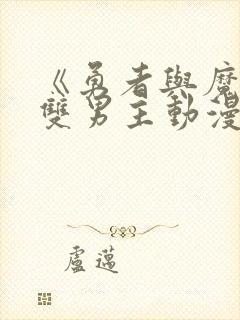 《勇者與魔
雙男主動漫
盧薖